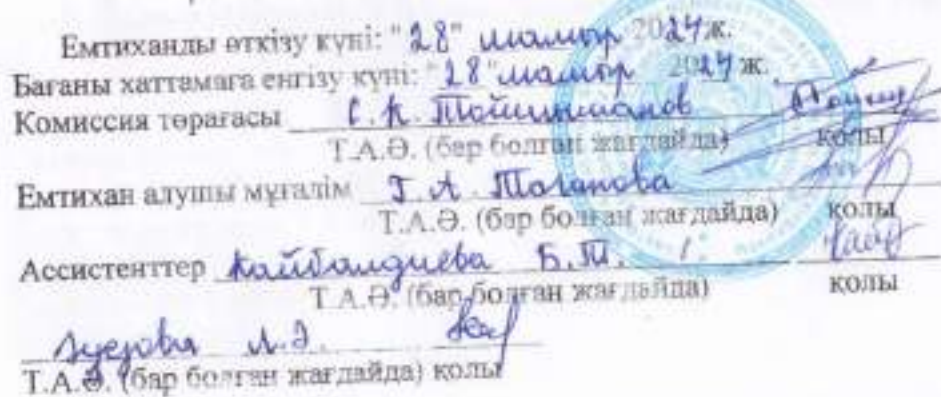 Емтиханды өткізу күні: "28" мамыр 2024ж.
Бағаны хаттамаға енгізу күні: "28" мамыр 2024 ж.
Комиссия төрағасы С. К.
Т.А.Ә. (бар болған жағдайда) қолы
Емтихан алушы мұғалім Г. А. Тоганова
Т.А.Ә. (бар болған жағдайда) қолы
Ассистенттер Кайбалдиева Б.Т.
Т.А.Ә. (бар болған жағдайда) қолы
Ауезова Л.Э.
Т.А.Ә. (бар болған жағдайда) қолы